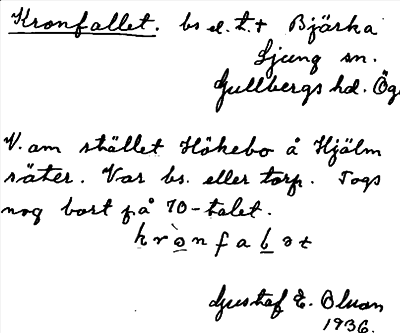 Kronfallet. bs el. t. + Bjärka
Ljung sn.
Gullbergs hd. Ög.
V. om stället Hökebo å Hjälm
säter. Var bs. eller torp. Togs
nog bort på 70-talet.
krònfalət
Gustaf E. Olson
1936.